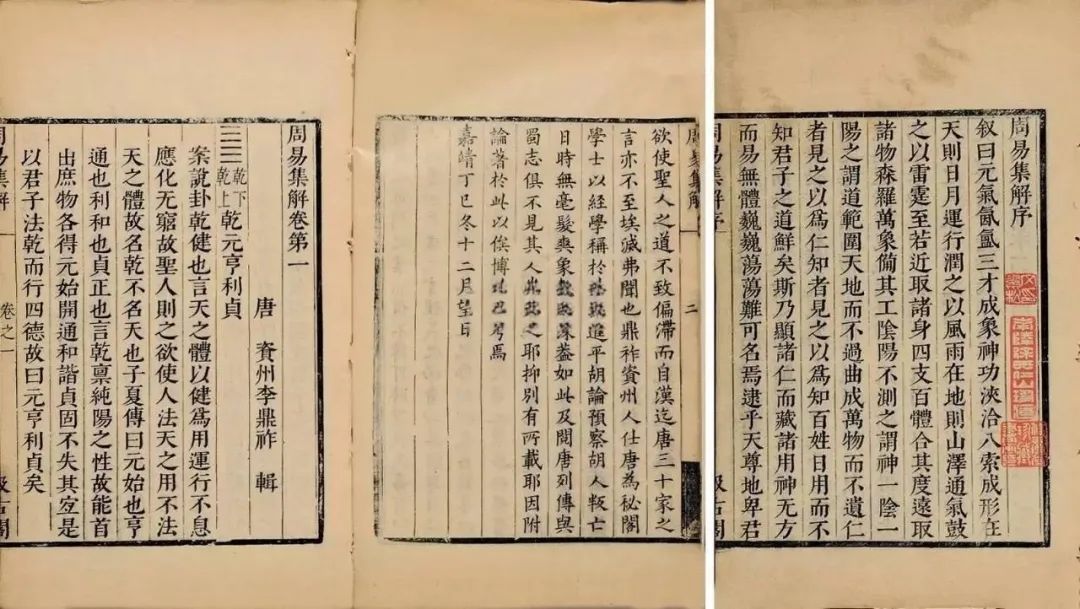 周易集解序
叙曰元氣氤氳三才成象神功浹洽八索成形在
天則日月運行潤之以風雨在地則山澤通氣鼓
之以雷霆至若近取諸身四支百體合其度遠取
諸物森羅萬象備其工陰陽不測之謂神一陰一
陽之謂道範圍天地而不過曲成萬物而不遺仁
者見之以爲仁知者見之以爲知百姓日用而不
知君子之道鮮矣斯乃顯諸仁而藏諸用神无方
而易無體巍巍蕩蕩難可名焉逮乎天尊地卑君
周易集解序
汲古閣
周易集解
二
欲使聖人之道不致偏滯而自漢迄唐三十家之
言亦不至埃滅弗聞也鼎祚資州人仕唐爲秘閣
學士以經學稱於時嘗進平胡論預察胡人叛亡
日時無毫髮爽象數精深蓋如此及閱唐列傳與
蜀志俱不見其人豈遺之耶抑別有所載耶因附
論著於此以俟博雅君子考焉
嘉靖丁巳冬十二月望日
周易集解卷第一
唐 資州李鼎祚 輯
☰☰乾下乾上乾元亨利貞
案說卦乾健也言天之體以健爲用運行不息
應化无窮故聖人則之欲使人法天之用不法
天之體故名乾不名天也子夏傳曰元始也亨
通也利和也貞正也言乾稟純陽之性故能首
出庶物各得元始開通和諧貞固不失其宜是
以君子法乾而行四德故曰元亨利貞矣
周易集解
卷之一
汲古閣